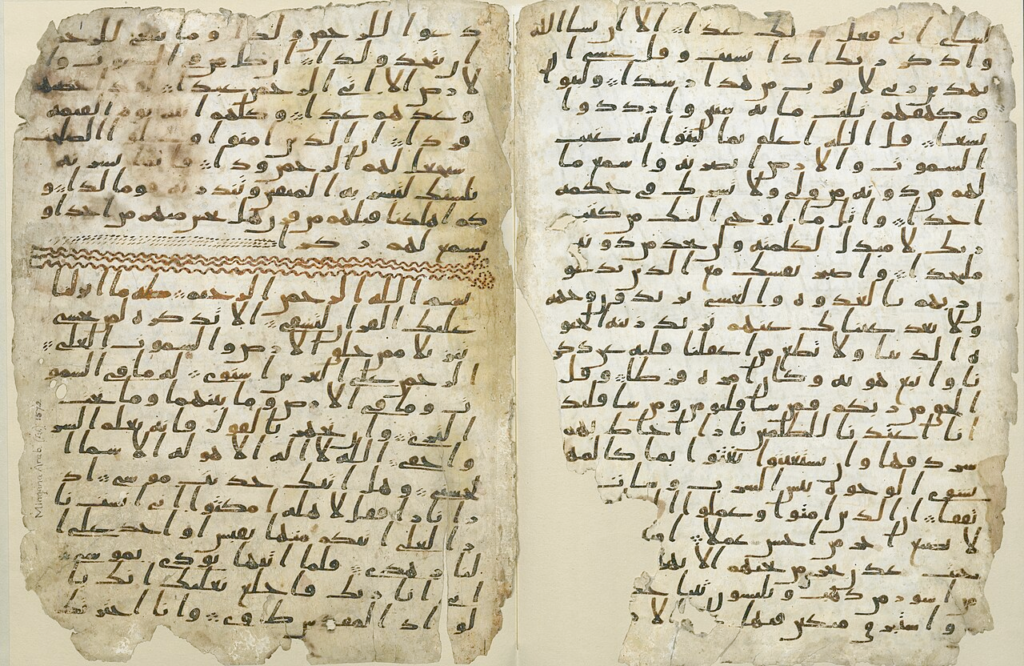 لشاي اني فعل ذلك غدا الا ان يشا الله
واذكر ربك اذا نسيت وقل عسى ان
يهدين ربي لاقرب من هذا رشدا ولبثوا
في كهفهم ثلث مائه سنين وازددوا
تسعا قل الله اعلم بما لبثوا له غيب
السموت والارض ابصر به واسمع ما
لهم من دونه من ولي ولا يشرك في حكمه
احدا واتل ما اوحي اليك من كتب
ربك لا مبدل لكلمته ولن تجد من دونه
ملتحدا واصبر نفسك مع الذين يدعو
ن ربهم بالغدوه والعشي يريدون وجهه
ولا تعد عيناك عنهم تريد زينه الحيو
ه الدنيا ولا تطع من اغفلنا قلبه عن ذكر
نا واتبع هويه وكان امره فرطا وقل
الحق من ربكم فمن شا فليومن ومن شا فليكـ
انا اعتدنا للظلمين نارا احاط بهم
سردقها وان يستغيثوا يغثوا بما كالمه
يشوي الوجوه بئس الشرب وسات
تفقا ان الذين امنوا وعملوا ا
لا نضيع اجر من احسن عملا ا
جنت عدن تجري من تحتهم الانها
من اسور من ذهب ويلبسون ثيابا خـ
واستبرق متكين فيها الار
دعوا للرحمن ولدا وما ينبغي للرحمن
ان يتخذ ولدا ان كل من في السموت وا
لارض الا اتي الرحمن عبدا لقد احصيهم
وعدهم عدا وكلهم اتيه يوم القيمه
فردا ان الذين امنوا وعملوا الصلحت
سيجعل لهم الرحمن ودا فانما يسرنه
بلسنك لتبشر به المتقين وتنذر به قوما لدا و
كم اهلكنا قبلهم من قرن هل تحس منهم من احد او
تسمع لهم ركزا
بسم الله الرحمن الرحيم طه ما انزلنا
عليك القران لتشقى الا تذكره لمن يخشى
تنزيلا ممن خلق الارض والسموت العلى
الرحمن على العرش استوى له ما في السمو
ت وما في الارض وما بينهما وما تحت
الثرى وان تجهر بالقول فانه يعلم السر
واخفى الله لا اله الا هو له الاسما ا
لحسنى وهل اتيك حديث موسى اذ
را نارا فقال لاهله امكثوا اني انست نا
را لعلي اتيكم منها بقبس او اجد على ا
لنار هدى فلما اتيها نودي يموسى
اني انا ربك فاخلع نعليك انك با
لواد المقدس طوى وانا اخترتك
Mingana Arab. Isl. 1572